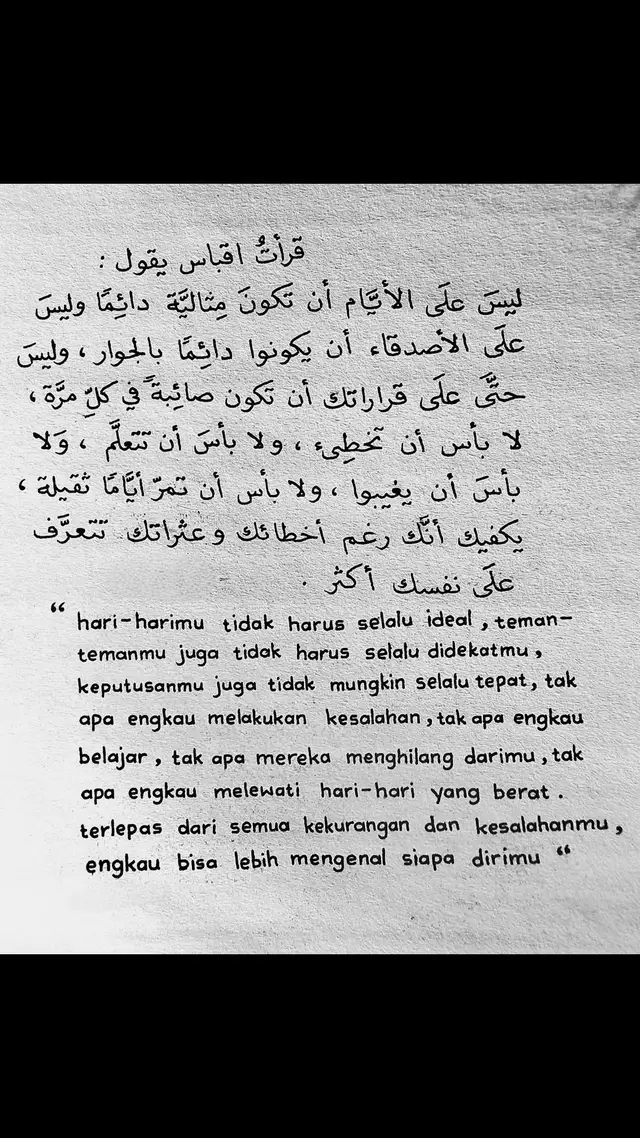 قرأتُ اقباس يقول :
ليسَ علَى الأيَّام أن تَكونَ مِثاليَّة دائِمًا وليسَ
علَى الأصدقاء أن يكونوا دائِمًا بالجوار ، وليسَ
حتَّى علَى قراراتك أن تكون صائِبةً في كلِّ مرَّة ،
لا بأس أن تخطِىء ، ولا بأسَ أن تتعلَّم ، وَلا
بأسَ أن يغيبوا ، ولا بأس أن تمرّ أيَّامًا ثقيلة ،
يكفيك أنَّك رغم أخطائك وعثراتك تتعرَّف
علَى نفسك أكثر .
“ hari-harimu tidak harus selalu ideal , teman-
temanmu juga tidak harus selalu didekatmu ,
keputusanmu juga tidak mungkin selalu tepat, tak
apa engkau melakukan kesalahan , tak apa engkau
belajar , tak apa mereka menghilang darimu , tak
apa engkau melewati hari-hari yang berat .
terlepas dari semua kekurangan dan kesalahanmu ,
engkau bisa lebih mengenal siapa dirimu “